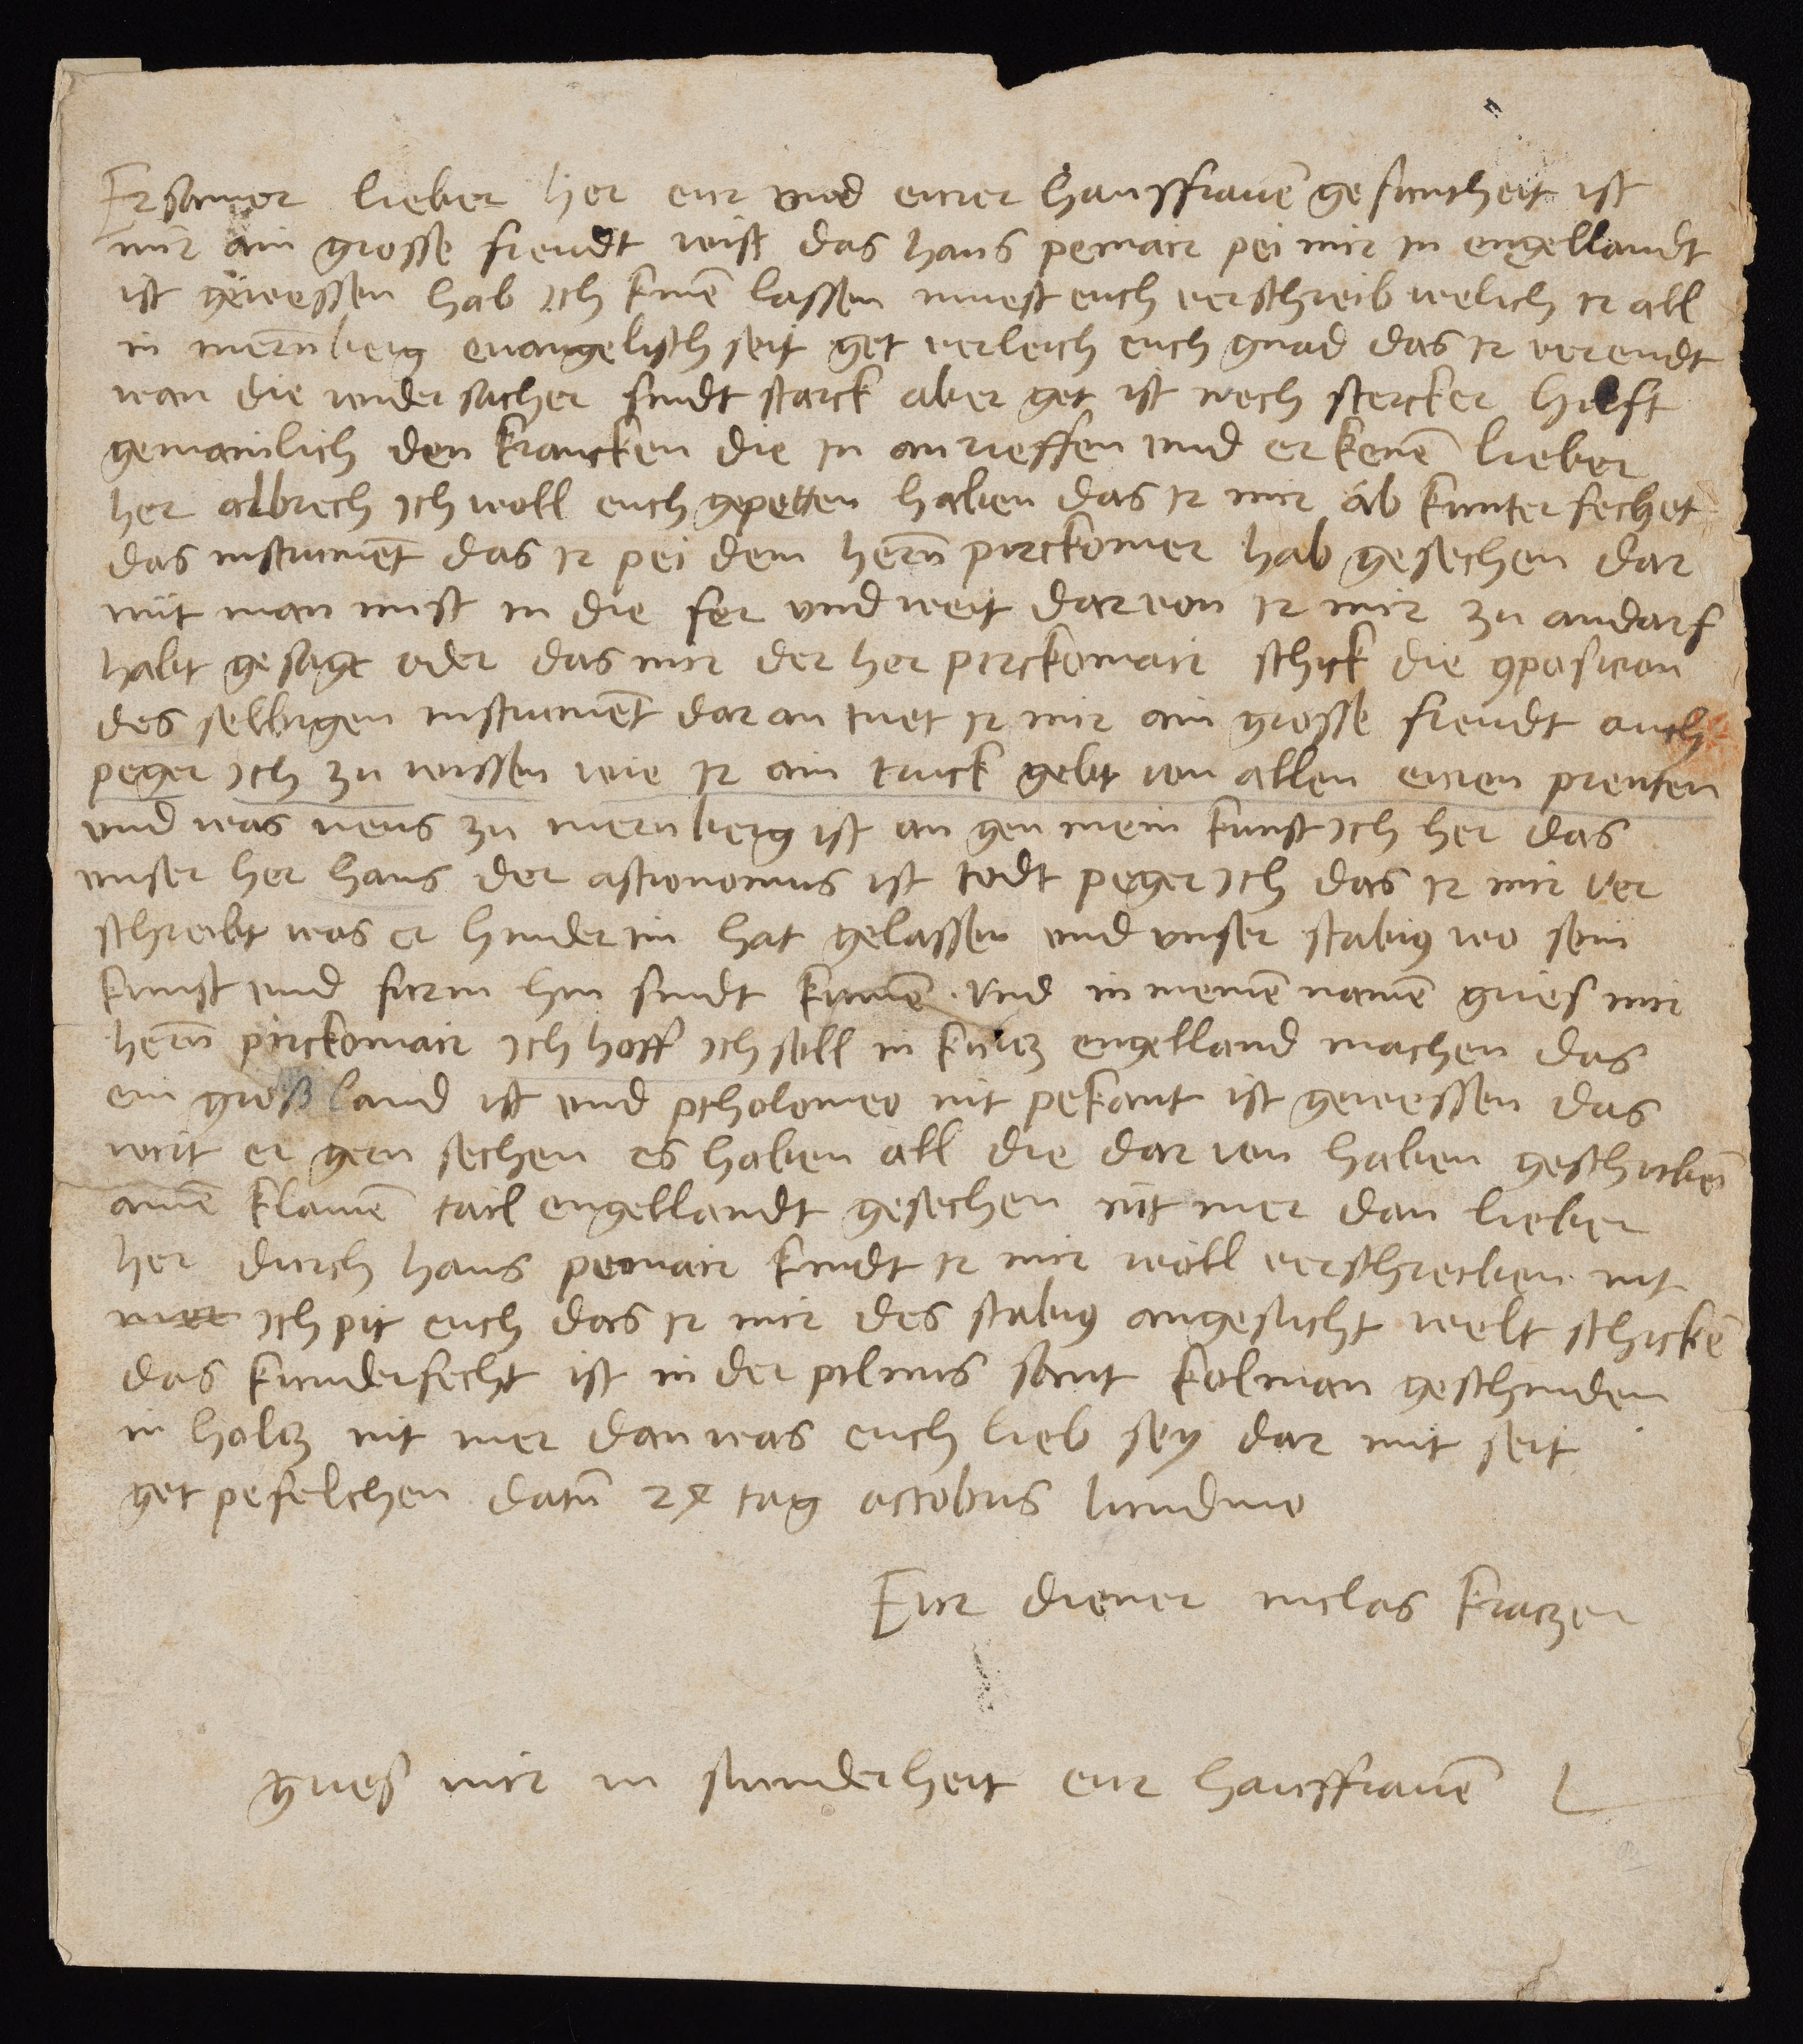 Ersamer lieber her eur und eurer haussfrauen̄ gesuntheit ist
mir ain grosse freudt wist das hans pemair pei mir in engellandt
ist gewessen hab ich kinē lassen muest euch verschreib welich ir all
in niernberg evangelisch seit got verleich euch gnad das ir verendt
wan die widersacher sindt starck aber got ist noch stercker hilft
gemainlich den krancken die in anrieffen und erkenē lieber
her albrech ich woll euch gepetten haben das ir mir ab kunterfechet
das instrumēt das ir pei dem hern̄ pirckomer hab gesechen dar
mit man mist in die fer und weit darvon ir mir zu andarf
habt gesagt oder das mir der her pirckomair schick die 9posicion
des selbigen instrumēt daran tuet ir mir ain grosse freudt auch
peger ich zu wissen wie ir ain truck gebt von allen euren prenten
und was neus zu niernberg ist an gen mein kunst ich her das
unser her hans der astronomus ist todt peger ich das ir mir ver
schreibt was er hinder im hat gelassen und unser stabi9 wo sein
kunst und furm hin sindt kumē. und in meinē namē gries mir
hern̄ pirckomair ich hoff ich soll in kurtz engelland machen das
ein groß land ist und ptholomeo nit pekant ist gewessen das
wirt er gern sechen es haben all die dar von haben geschribē
ainē klainē tail engellandt gesechen nit mer dan lieber
her durch hans pomair kindt ir mir woll verschreiben nit
mer ich pit euch das ir mir des stabi9 angesicht welt schickē
das kunderfecht ist in der pilnus sant kolman geschniden
in holtz nit mer dan was euch lieb sey dar mit seit
got pefelchen datū 24 tag octobris lundino
Eur diener niclas kratzer
gries mir in sunderheit eur haussfrauē